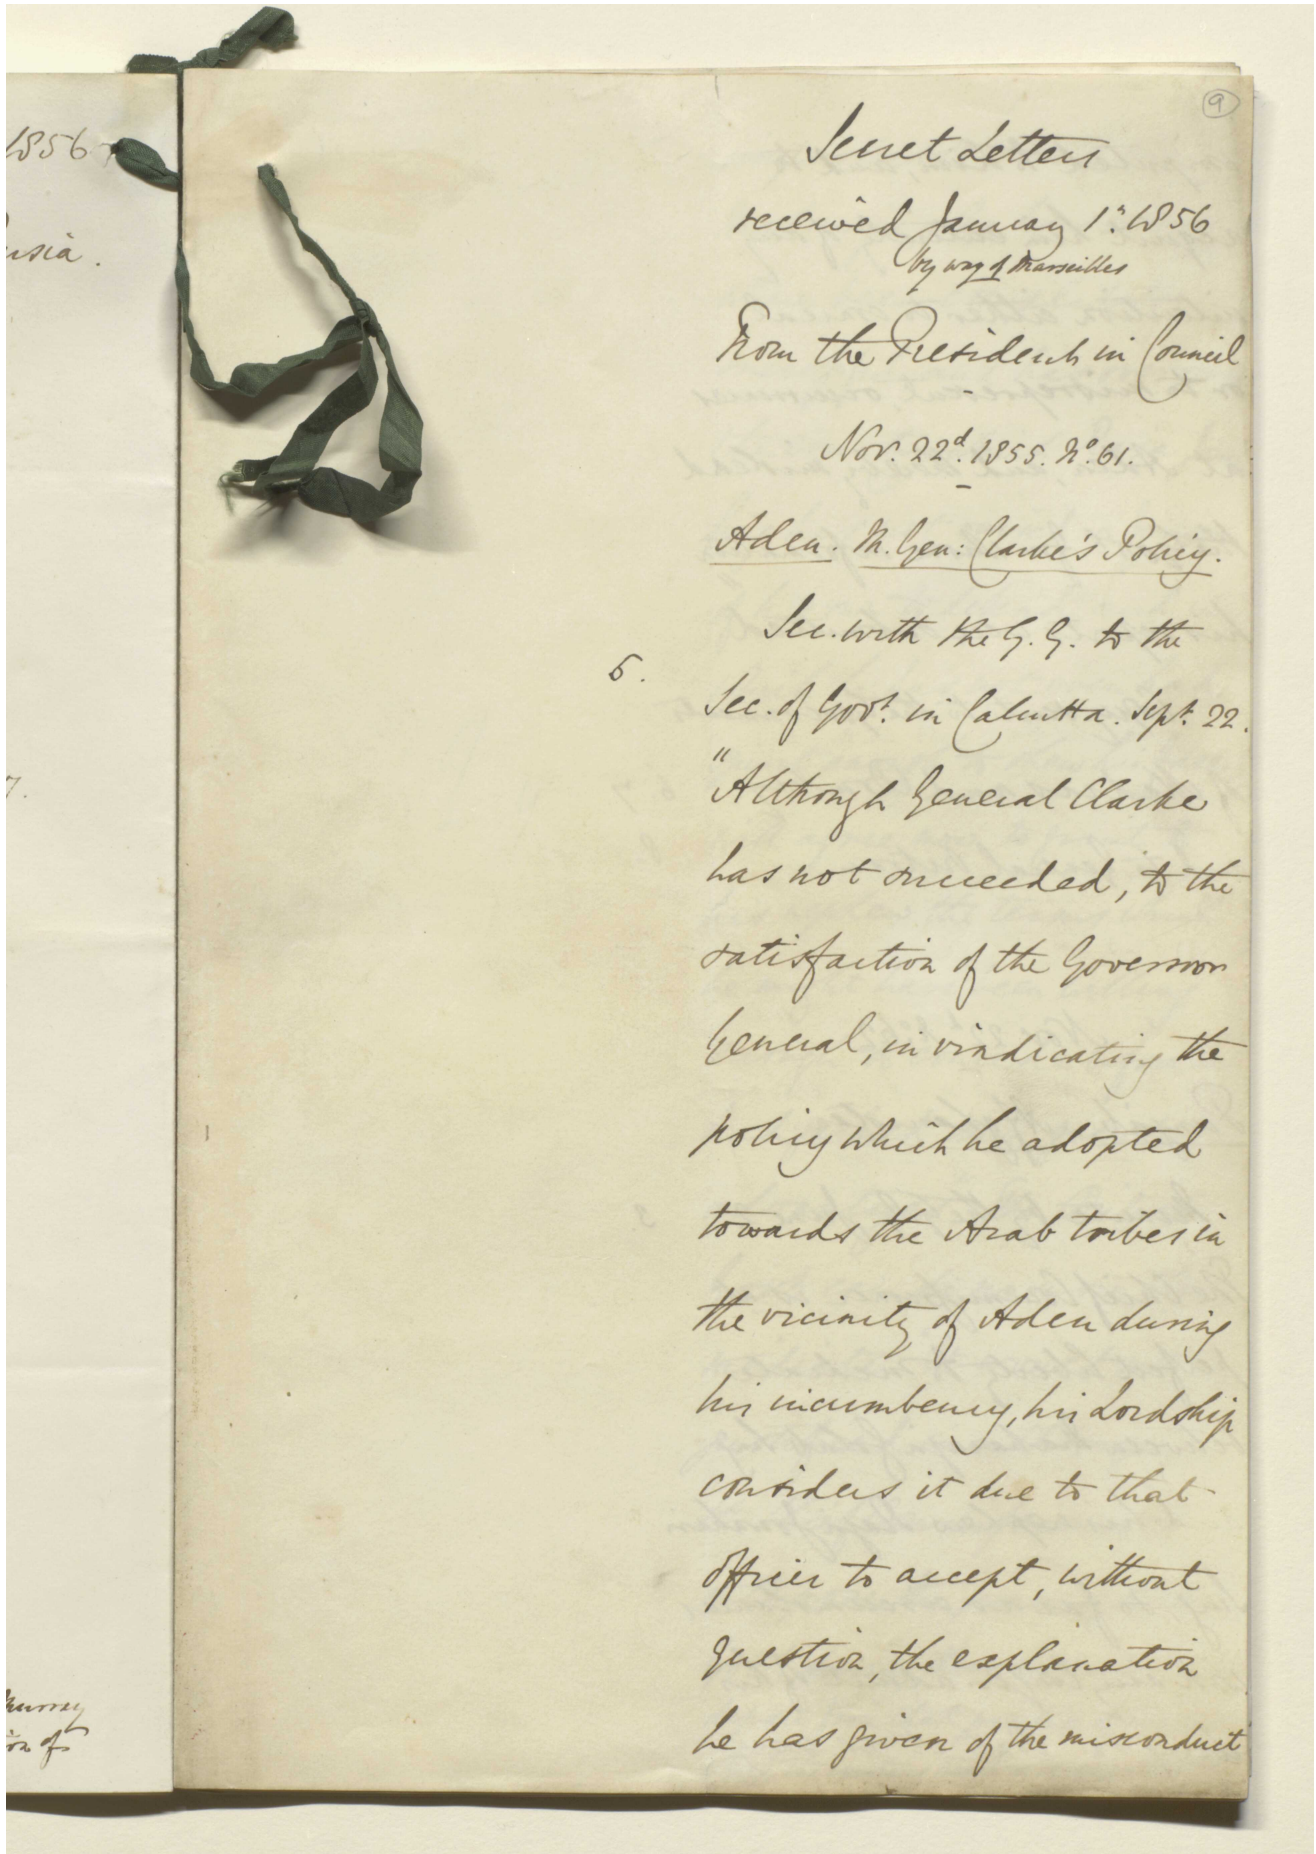 1856
9
Secret Letters
received January 1st. 1856
by way of Marseilles
From the President in Council
Nov. 22d. 1855. No. 61.
Aden. M. Gen: Clarke's Policy.
Sec. with the G. G. to the
5.
Sec. of Govt. in Calcutta. Sept. 22.
"Although General Clarke
has not succeeded, to the
satisfaction of the Governor
General, in vindicating the
policy which he adopted
towards the Arab tribes in
the vicinity of Aden during
his incumbency, his Lordship
considers it due to that
officer to accept, without
question, the explanation
he has given of the misconduct
7.
Murray
of